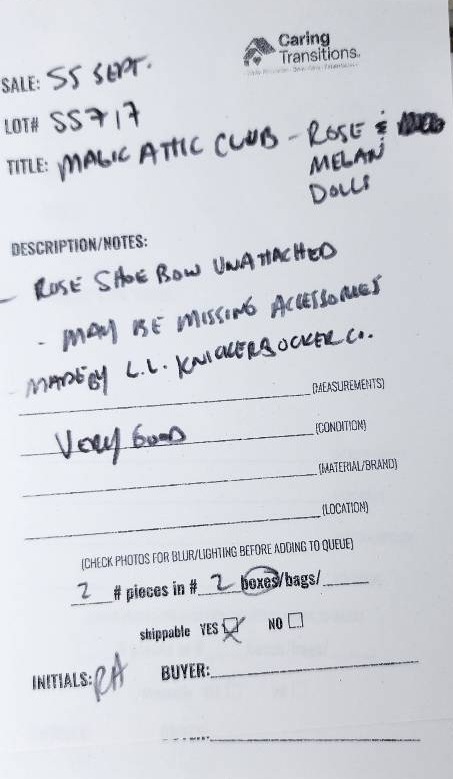 Caring
Transitions
SALE: SS SEPT.
LOT# SS717
TITLE: MAGIC ATTIC CLUB - ROSE &
MELAN
DOLLS
DESCRIPTION/NOTES:
- ROSE SHOE BOW UNATTACHED
- MAY BE MISSING ACCESSORIES
- MADE BY L.L. KNICKERBOCKER CO.
(MEASUREMENTS)
Very Good (CONDITION)
(MATERIAL/BRAND)
(LOCATION)
(CHECK PHOTOS FOR BLUR/LIGHTING BEFORE ADDING TO QUEUE)
2 # pieces in # 2 boxes/bags/
shippable YES NO
INITIALS: RA BUYER: